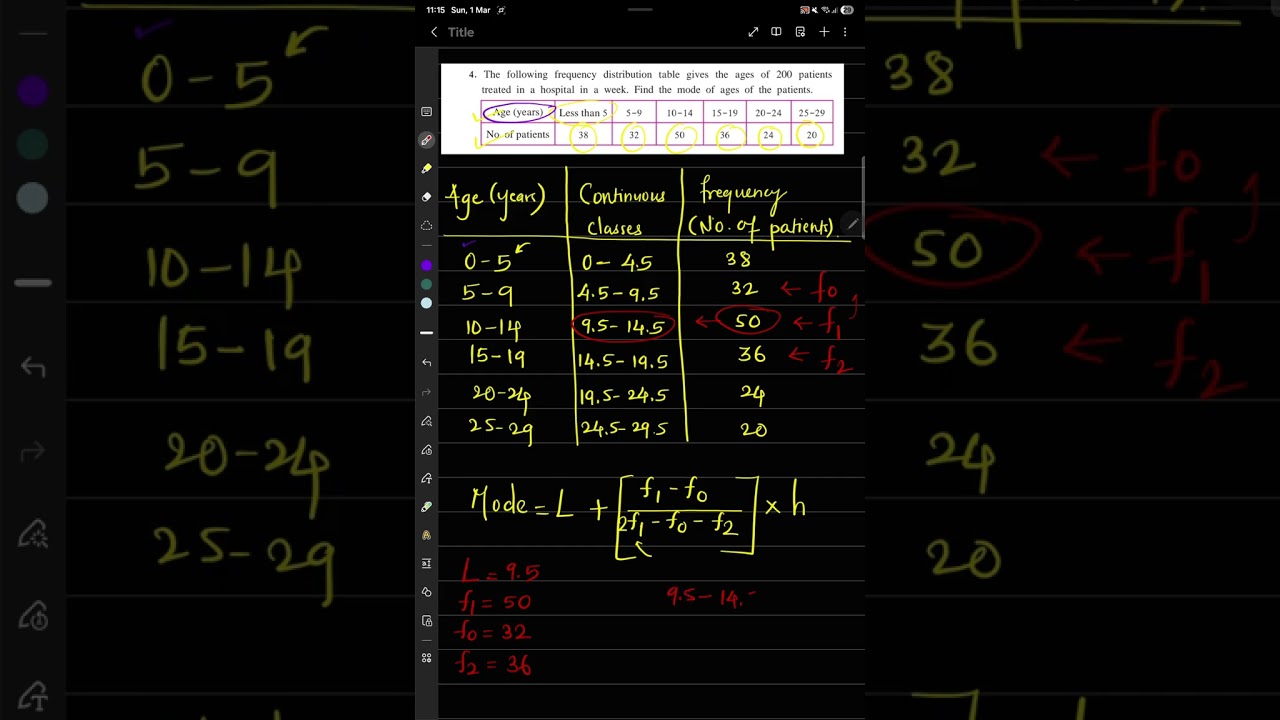 11:15 Sun, 1 Mar
20
Title
4. The following frequency distribution table gives the ages of 200 patients
treated in a hospital in a week. Find the mode of ages of the patients.
Age (years) Less than 5 5-9 10-14 15-19 20-24 25-29
No. of patients 38 32 50 36 24 20
Age (years) Continuous classes frequency (No. of patients).
0-5 0-4.5 38
5-9 4.5-9.5 32 ← f0
10-14 9.5-14.5 ← 50 ← f1
15-19 14.5-19.5 36 ← f2
20-24 19.5-24.5 24
25-29 24.5-29.5 20
Mode = L + [f1 - f0 / 2f1 - f0 - f2] × h
L = 9.5
f1 = 50
f0 = 32
f2 = 36
9.5-14.
0-5
5-9
10-14
15-19
20-24
25-29
38
32 ← f0
50 ← f1
36 ← f2
24
20